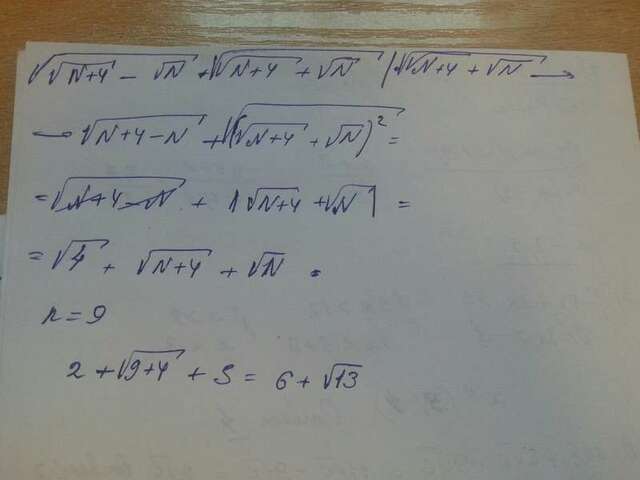 √(√(N+4) − √N) + √(√(N+4) + √N) | √(√(N+4) + √N) →
→ √(N+4−N) + √(√(N+4) + √N)² =
= √(N+4−N) + |√(N+4) + √N| =
= √4 + √(N+4) + √N .
n=9
2 + √(9+4) + 3 = 6 + √13